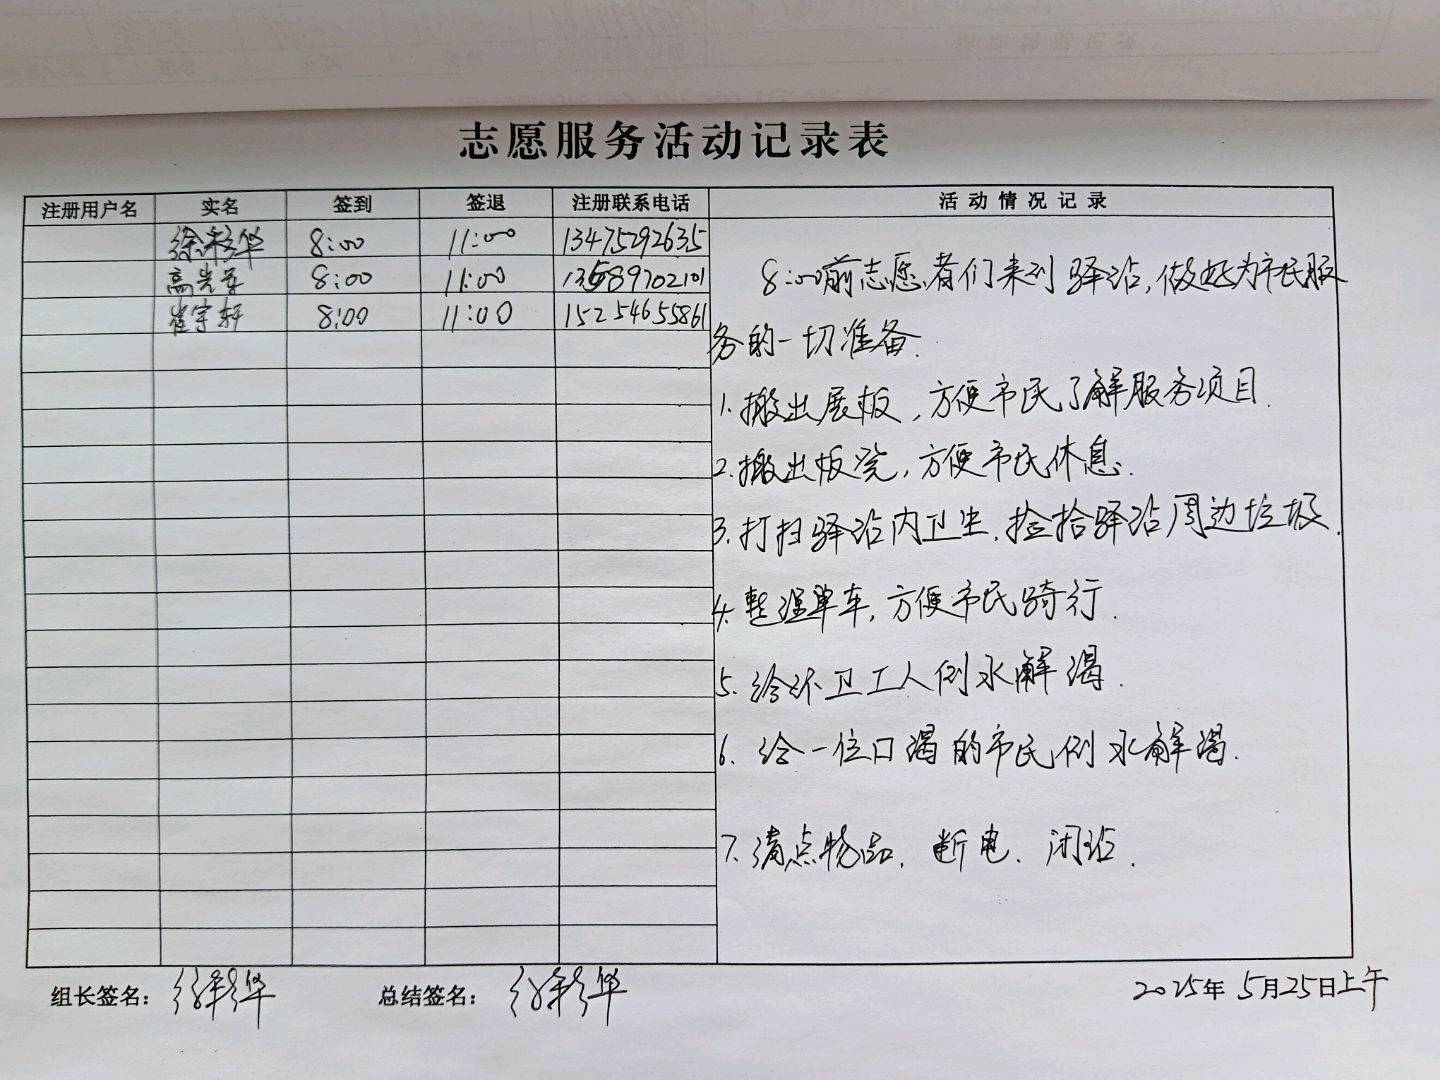 志愿服务活动记录表
注册用户名 实名 签到 签退 注册联系电话 活动情况记录
徐彩华 8:00 11:00 13475292635
高光荣 8:00 11:00 13589702101
崔宇轩 8:00 11:00 15254655861
8:00前志愿者们来到驿站,做好为市民服
务的一切准备.
1.搬出展板,方便市民了解服务项目.
2.搬出板凳,方便市民休息.
3.打扫驿站内卫生,捡拾驿站周边垃圾.
4.整理单车,方便市民骑行.
5.给环卫工人倒水解渴.
6.给一位口渴的市民倒水解渴.
7.清点物品、断电、闭站.
组长签名:徐彩华 总结签名:徐彩华 2025年5月25日上午